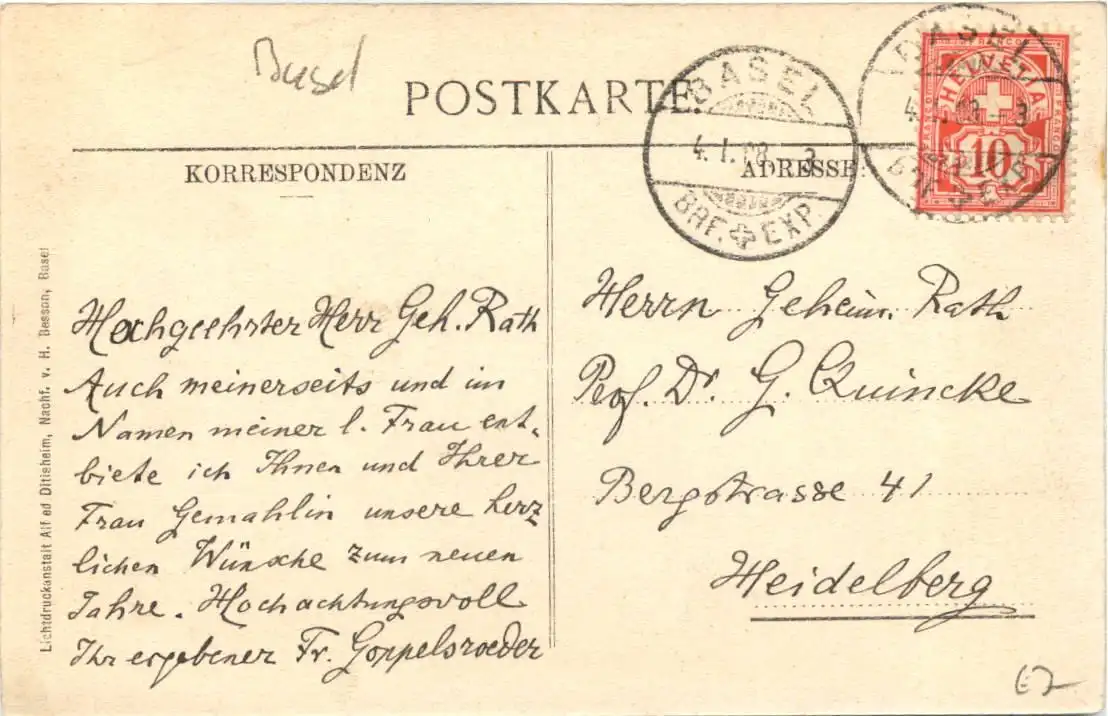 Basel
POSTKARTE.
BASEL
4.I.08 - 3
BRF. EXP.
BASEL
HELVETIA
FRANCO
10
KORRESPONDENZ
ADRESSE:
Hochgeehrter Herr Geh. Rath
Auch meinerseits und im
Namen meiner l. Frau ent-
biete ich Ihnen und Ihrer
Frau Gemahlin unsere herz
lichen Wünsche zum neuen
Jahre. Hochachtungsvoll
Ihr ergebener Fr. Goppelsroeder
Herrn Geheim. Rath
Prof. Dr. G. Quincke
Bergstrasse 41
Heidelberg
Lichtdruckanstalt Alf ed Ditisheim, Nachf. v. H. Besson, Basel